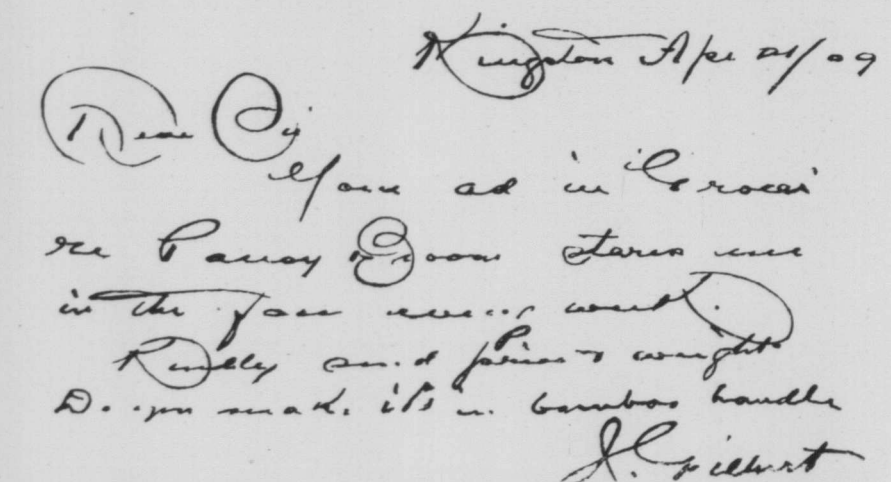 Kingston Apr 21/09
Dear Sir
Your ad in "Grocer"
re Pansy Broom stares me
in the face every week.
Kindly send prices & weights
Do you make it in bamboo handle
J. Gilbert